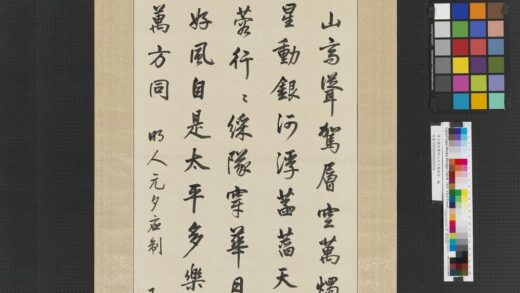 山高聳駕層空萬燭
星動銀河浮菡萏天
蓉行〻綵隊穿華月
好風自是太平多樂
萬方同 明人元夕应制